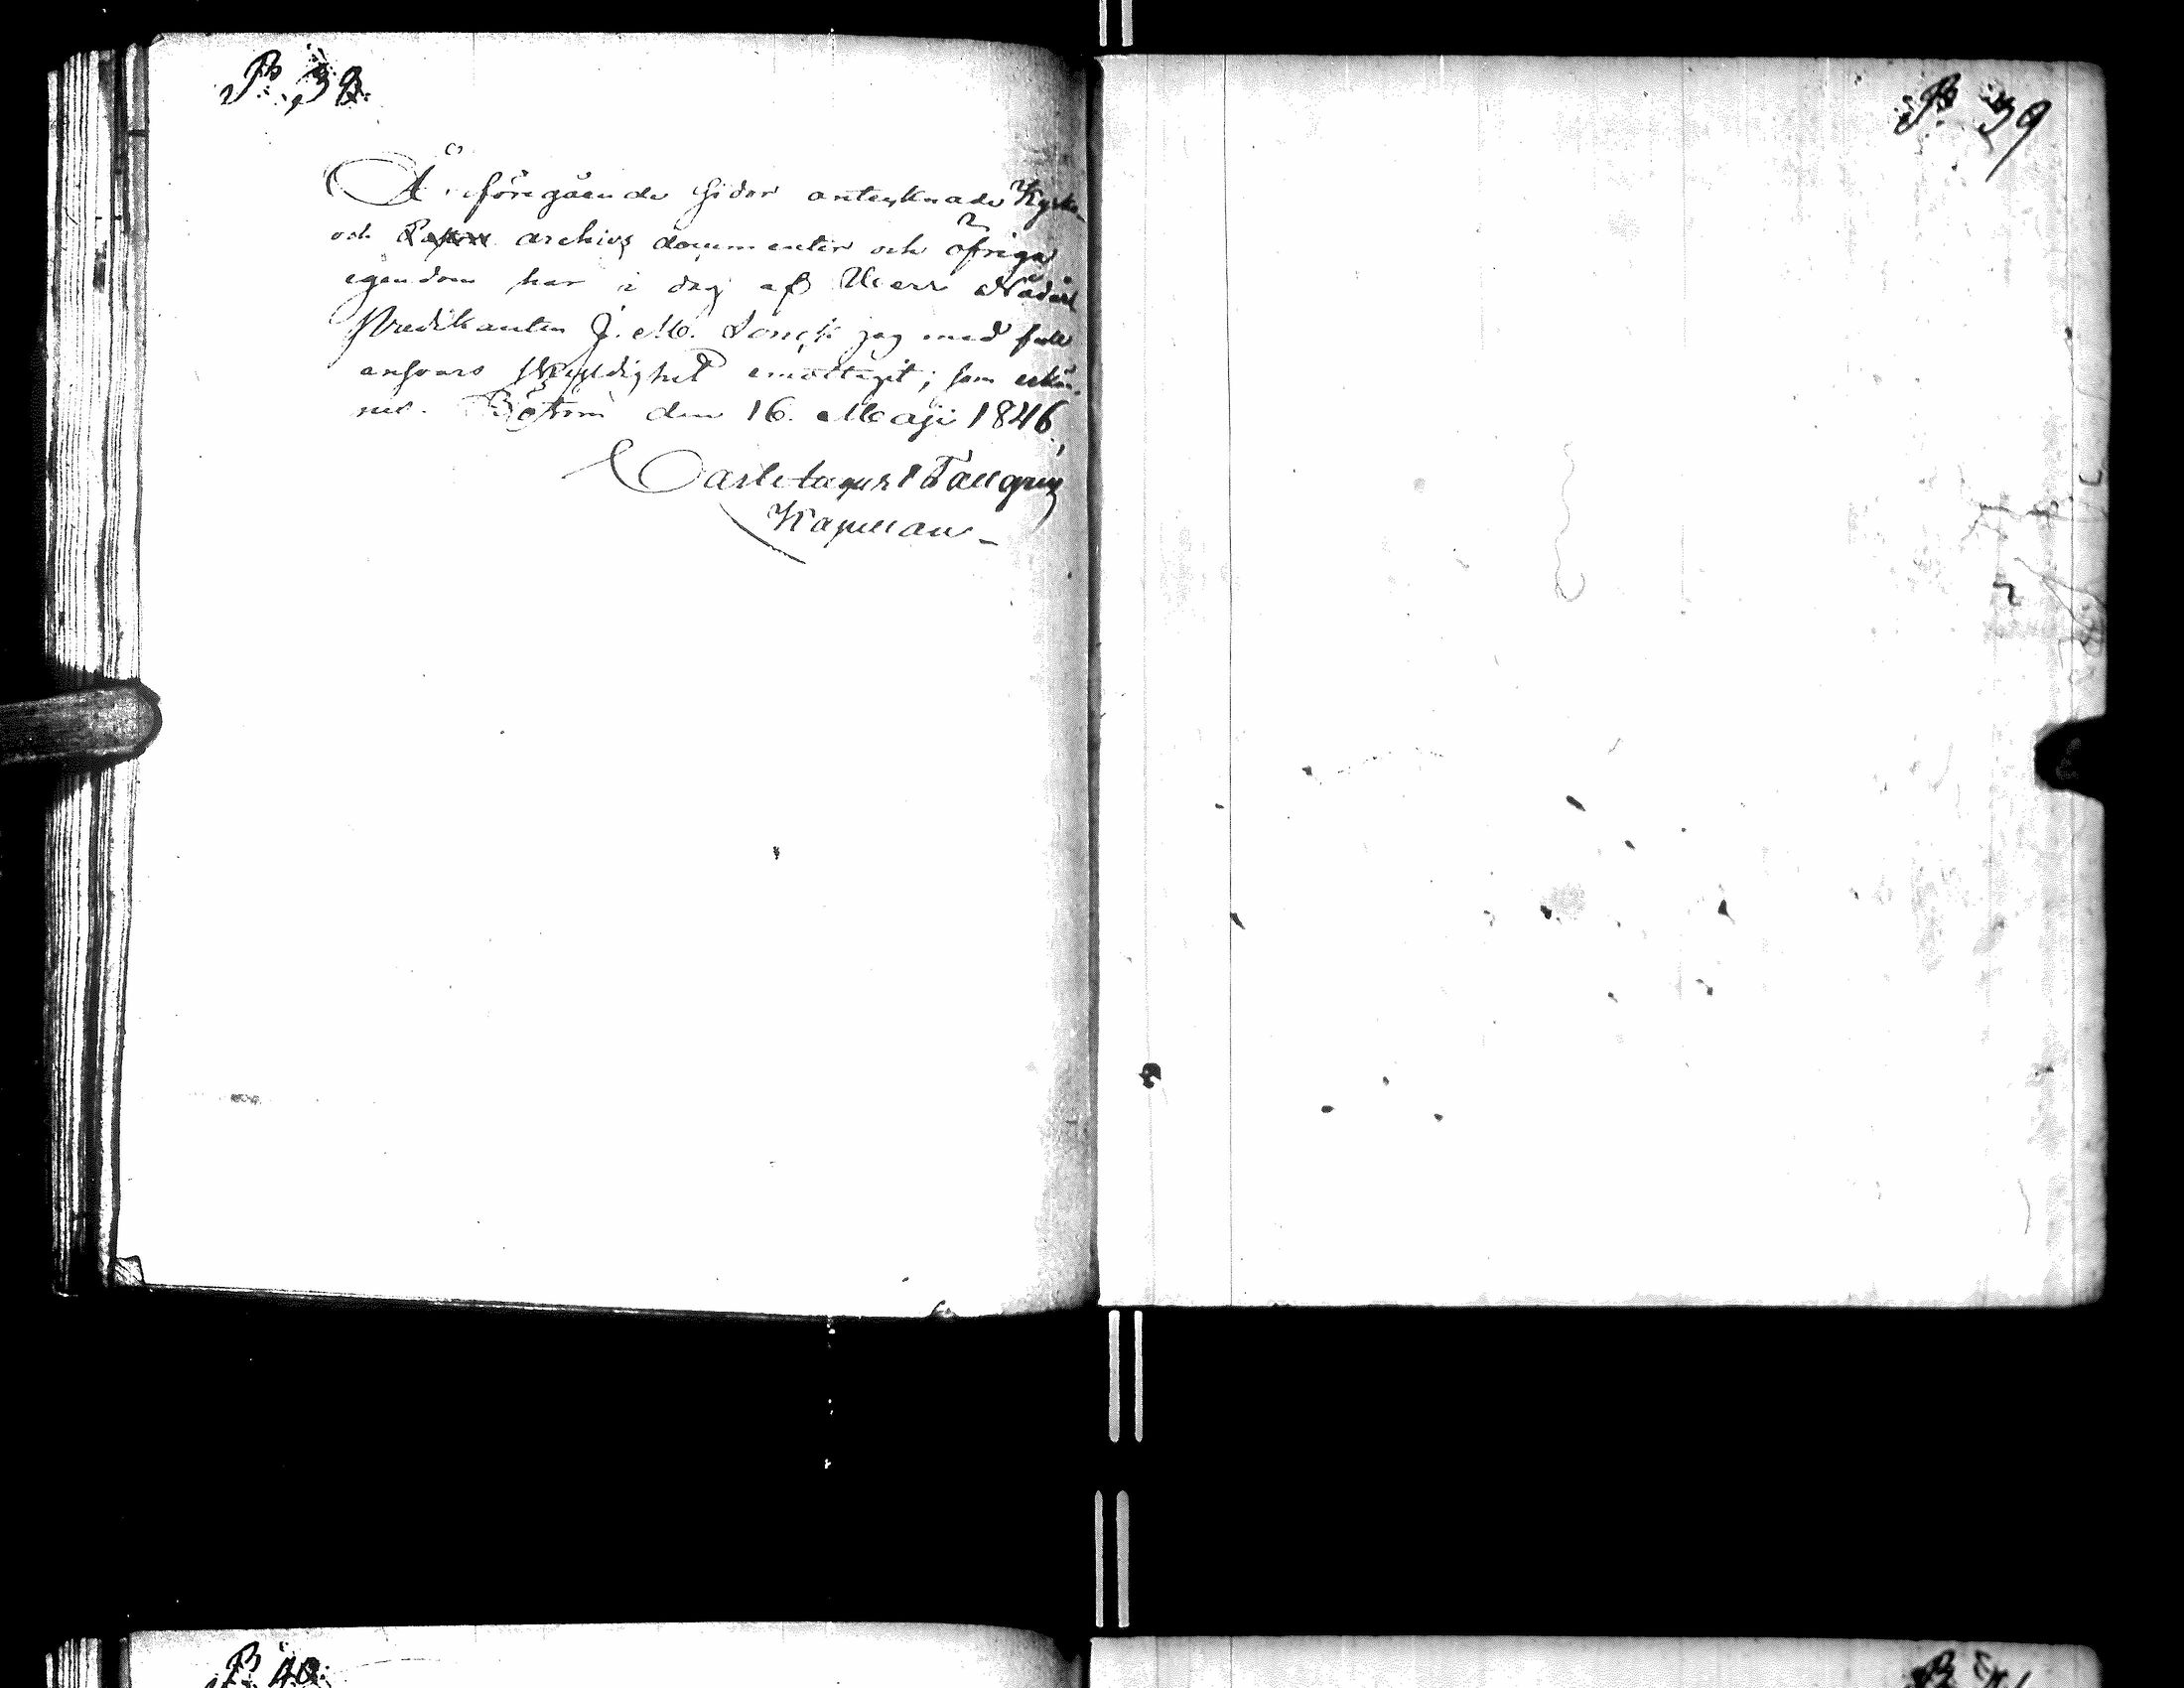 P. 38.
Å föregående sidor antecknade Kyrko-
och archivs documenter och öfriga
egendom har i dag af Herr Nådårs
Predikanten J. M. Lonck jag med full
ansvars skyldighet emottagit; som erkän-
nes. den 16. Maji 1846,
Carl August Tallgren
Kapellan
P. 39
P. 40.
P.